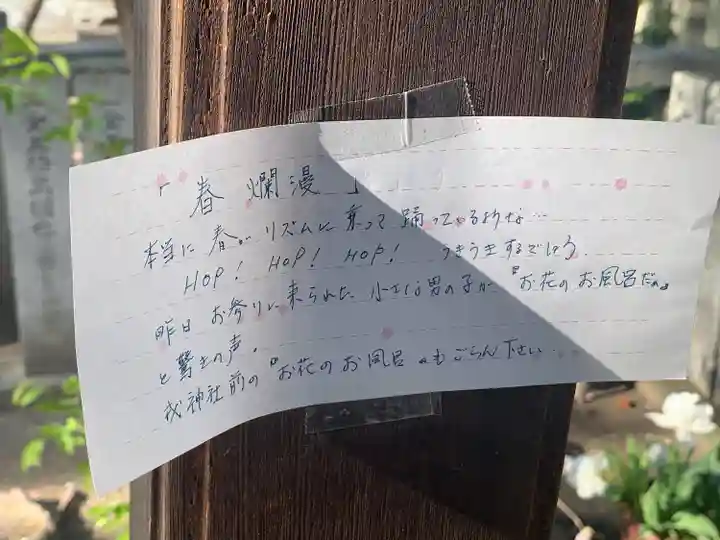 「春爛漫」
本当に春がリズムに乗って踊っているような…
HOP! HOP! HOP! うきうきするでしょう。
昨日お参りに来られた小さな男の子が『お花のお風呂だぁ』
と驚きの声。
戎神社前の『お花のお風呂』もごらん下さい…